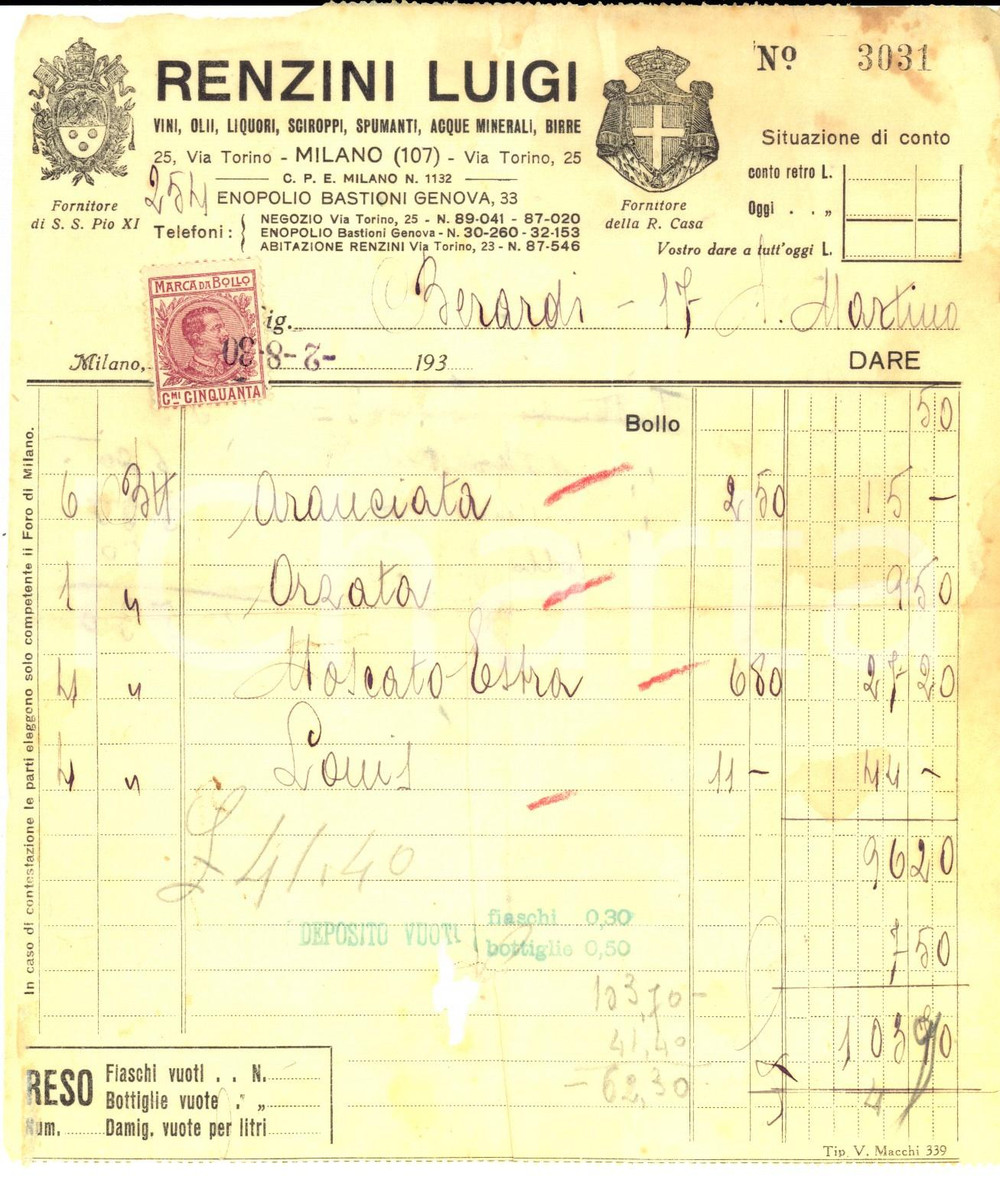 Nº 3031
RENZINI LUIGI
VINI, OLII, LIQUORI, SCIROPPI, SPUMANTI, ACQUE MINERALI, BIRRE
25, Via Torino - MILANO (107) - Via Torino, 25
C. P. E. MILANO N. 1132
ENOPOLIO BASTIONI GENOVA, 33
254
Telefoni :
NEGOZIO Via Torino, 25 - N. 89-041 - 87-020
ENOPOLIO Bastioni Genova - N. 30-260 - 32-153
ABITAZIONE RENZINI Via Torino, 23 - N. 87-546
Fornitore
di S. S. Pio XI
Fornitore
della R. Casa
Situazione di conto
conto retro L.
Oggi . . „
Vostro dare a tutt'oggi L.
MARCA DA BOLLO
CMI CINQUANTA
ig. Berardi - 17 S. Martino
Milano, -2-8-30 193
DARE
Bollo 50
6 Btt Aranciata 2 50 15 -
1 " Orzata 9 50
4 " Moscato Estra 6 80 27 20
4 " Louis 11 - 44 -
96 20
£ 41,40
DEPOSITO VUOTI
fiaschi 0,30
bottiglie 0,50
7 50
103,70 -
103 70
41,40
- 62,30
4
RESO
Fiaschi vuoti . . N.
Bottiglie vuote . „
Num. Damig. vuote per litri
In caso di contestazione le parti eleggono solo competente il Foro di Milano.
Tip. V. Macchi 339